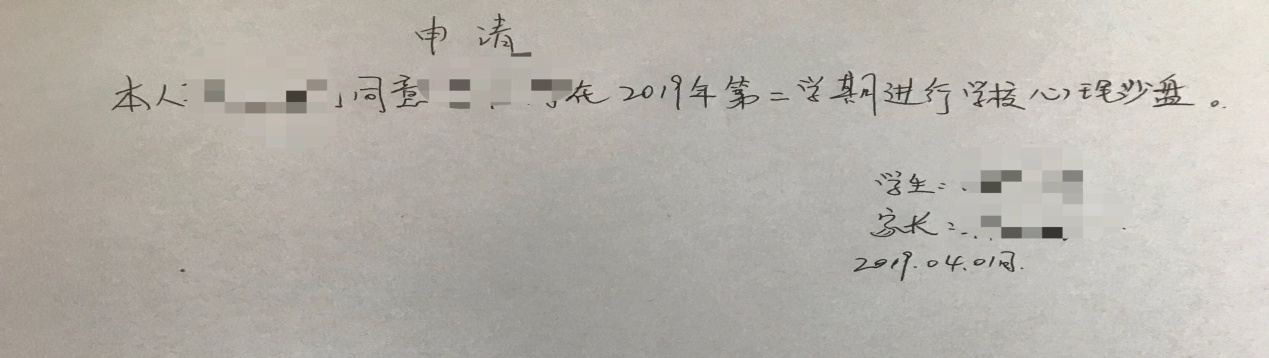 申请
本人: 同意 在2019年第二学期进行学校心理沙盘。
学生:
家长:
2019.04.01日.